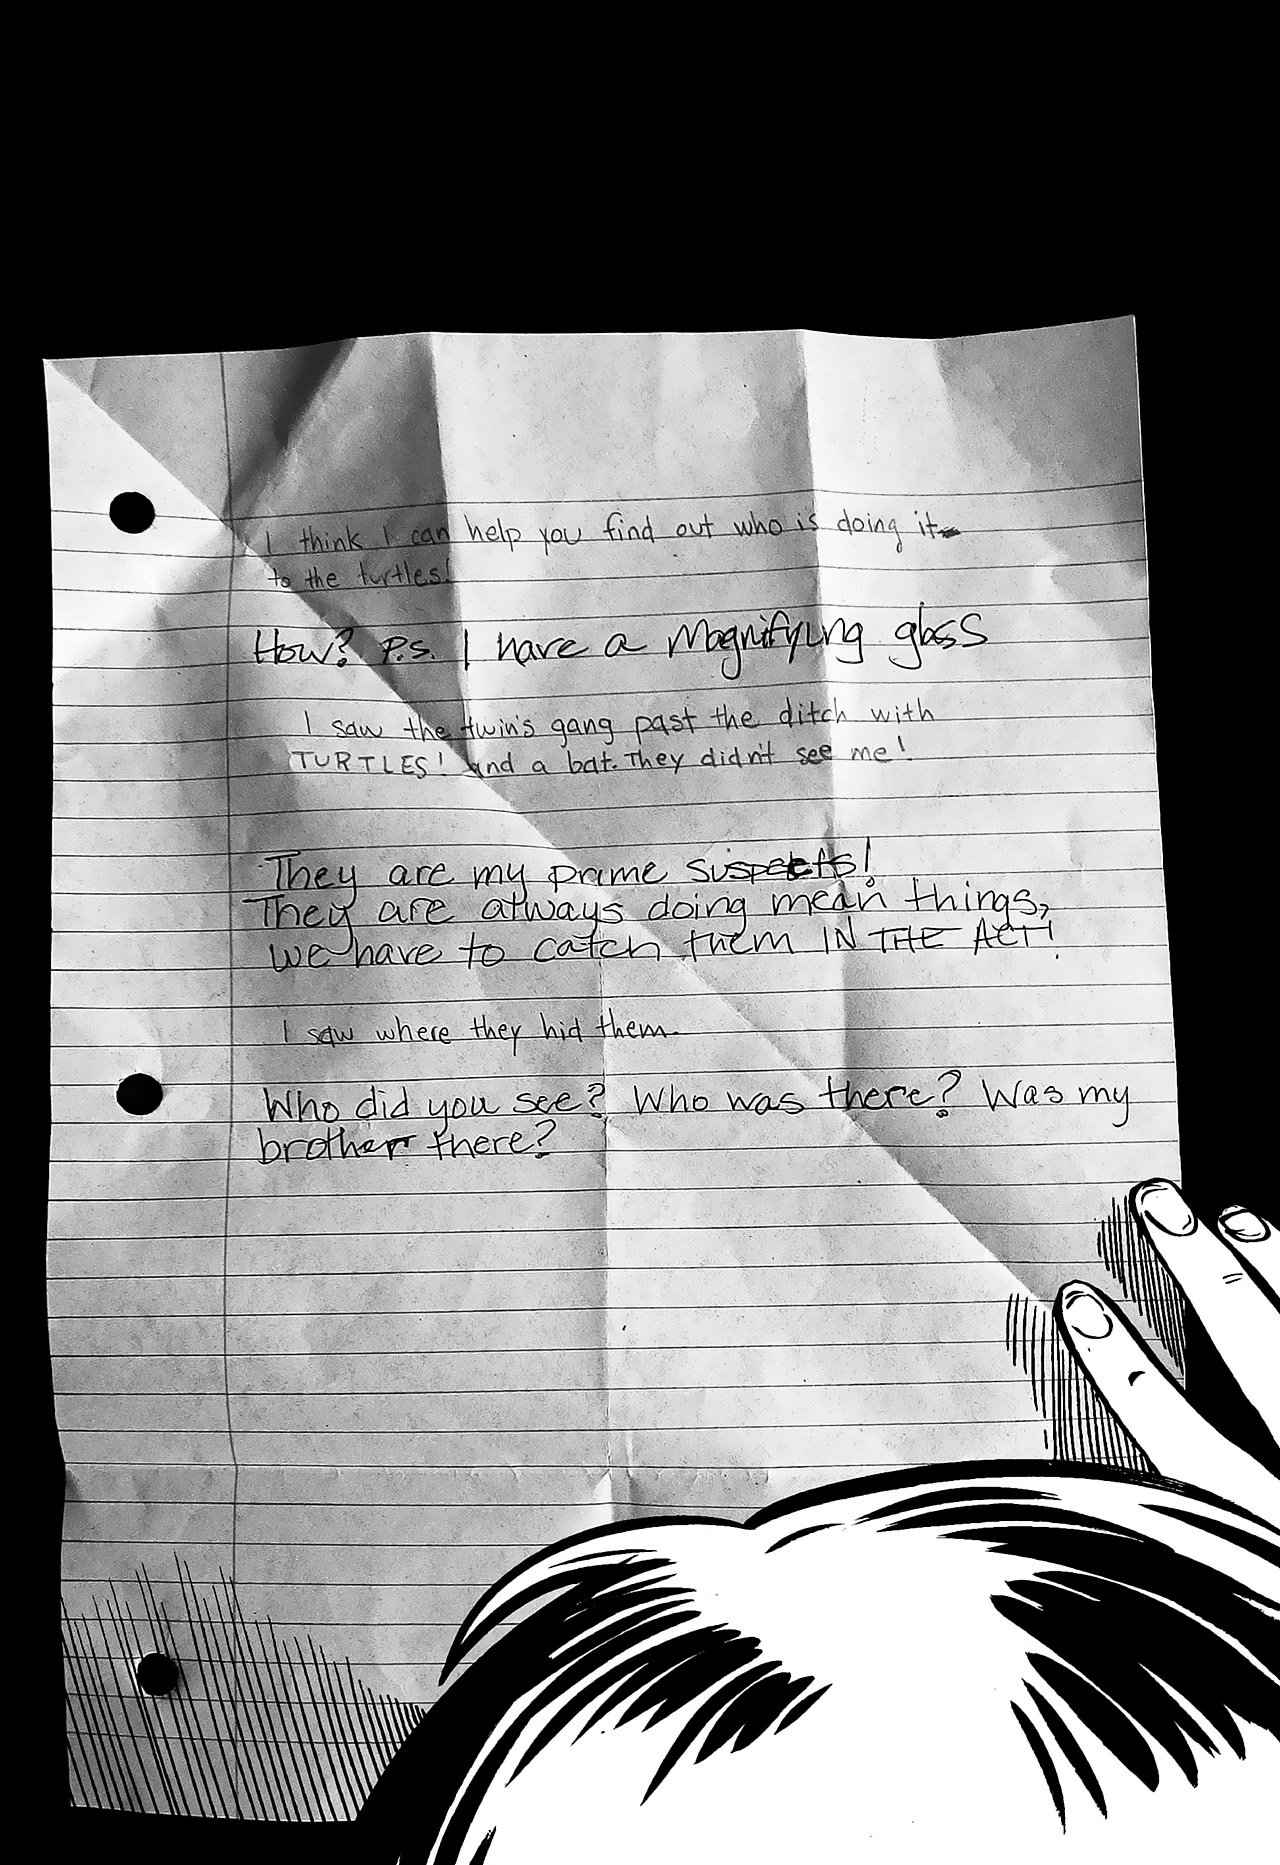 I think I can help you find out who is doing it
to the turtles!
How? P.S. I have a Magnifying glass
I saw the twin's gang past the ditch with
TURTLES! and a bat. They didn't see me!
They are my prime suspects!
They are always doing mean things,
we have to catch them IN THE ACT!
I saw where they hid them.
Who did you see? Who was there? Was my
brother there?